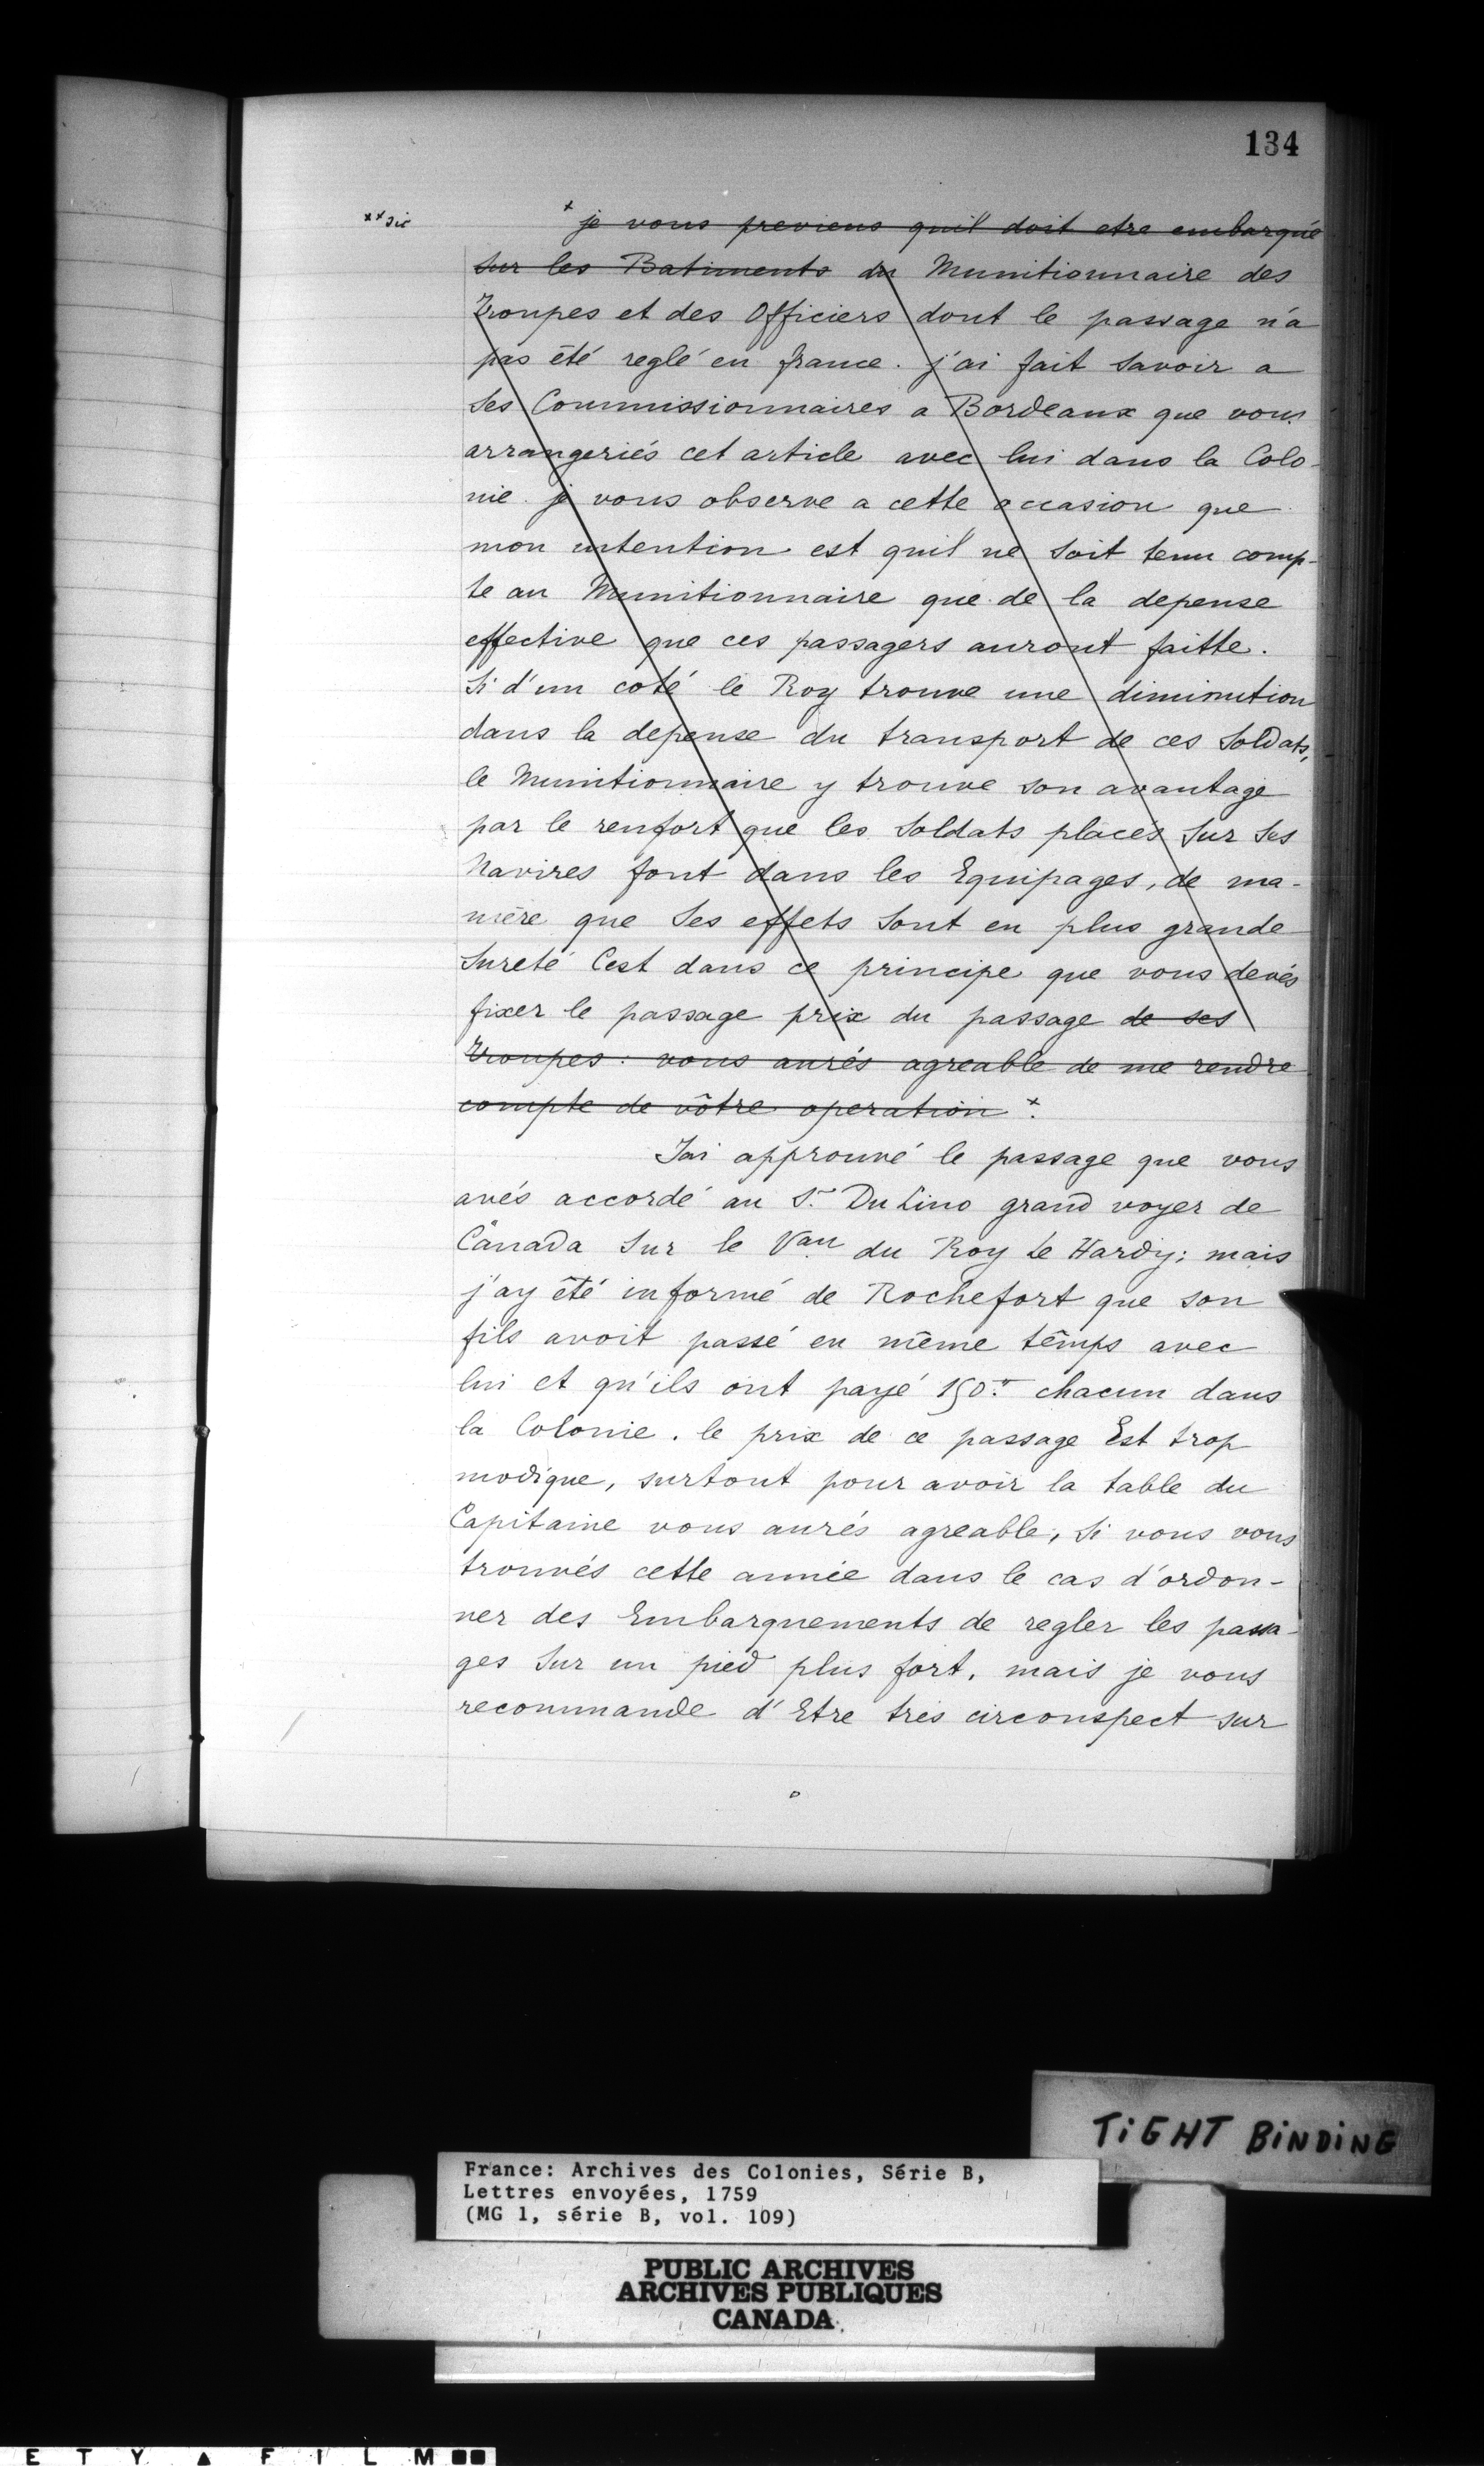 134
××sic
× je vous previens quil doit etre embarqué
sur les Batiments du Munitionnaire des
Troupes et des Officiers dont le passage n'a
pas été reglé en france. j'ai fait savoir a
ses Commissionnaires a Bordeaux que vous
arrangeriés cet article avec lui dans la Colo-
nie. je vous observe a cette occasion que
mon intention est quil ne soit tenu comp-
te au Munitionnaire que de la depense
effective que ces passagers auront faitte.
Si d'un coté le Roy trouve une diminution
dans la depense du transport de ces soldats,
le Munitionnaire y trouve son avantage
par le renfort que les soldats placés sur ses
Navires font dans les Equipages, de ma-
niére que ses effets sont en plus grande
sureté Cest dans ce principe que vous devés
fixer le passage prix du passage de ses
Troupes: vous aurés agreable de me rendre
compte de vôtre operation ×.
Jai approuvé le passage que vous
avés accordé au S.r Du Lino grand voyer de
Canada sur le Vau du Roy Le Hardy; mais
j'ay été informé de Rochefort que son
fils avoit passé en même têmps avec
lui et qu'ils ont payé 150.tt chacun dans
la Colonie. le prix de ce passage Est trop
modique, surtout pour avoir la table du
Capitaine vous aurés agreable, si vous vous
trouvés cette année dans le cas d'ordon-
ner des Embarquements de regler les passa-
ges sur un pied plus fort, mais je vous
recommande d'Etre trés circonspect sur
TiGHT BiNDiNG
France: Archives des Colonies, Série B,
Lettres envoyées, 1759
(MG 1, série B, vol. 109)
PUBLIC ARCHIVES
ARCHIVES PUBLIQUES
CANADA
E T Y ▲ F I L M